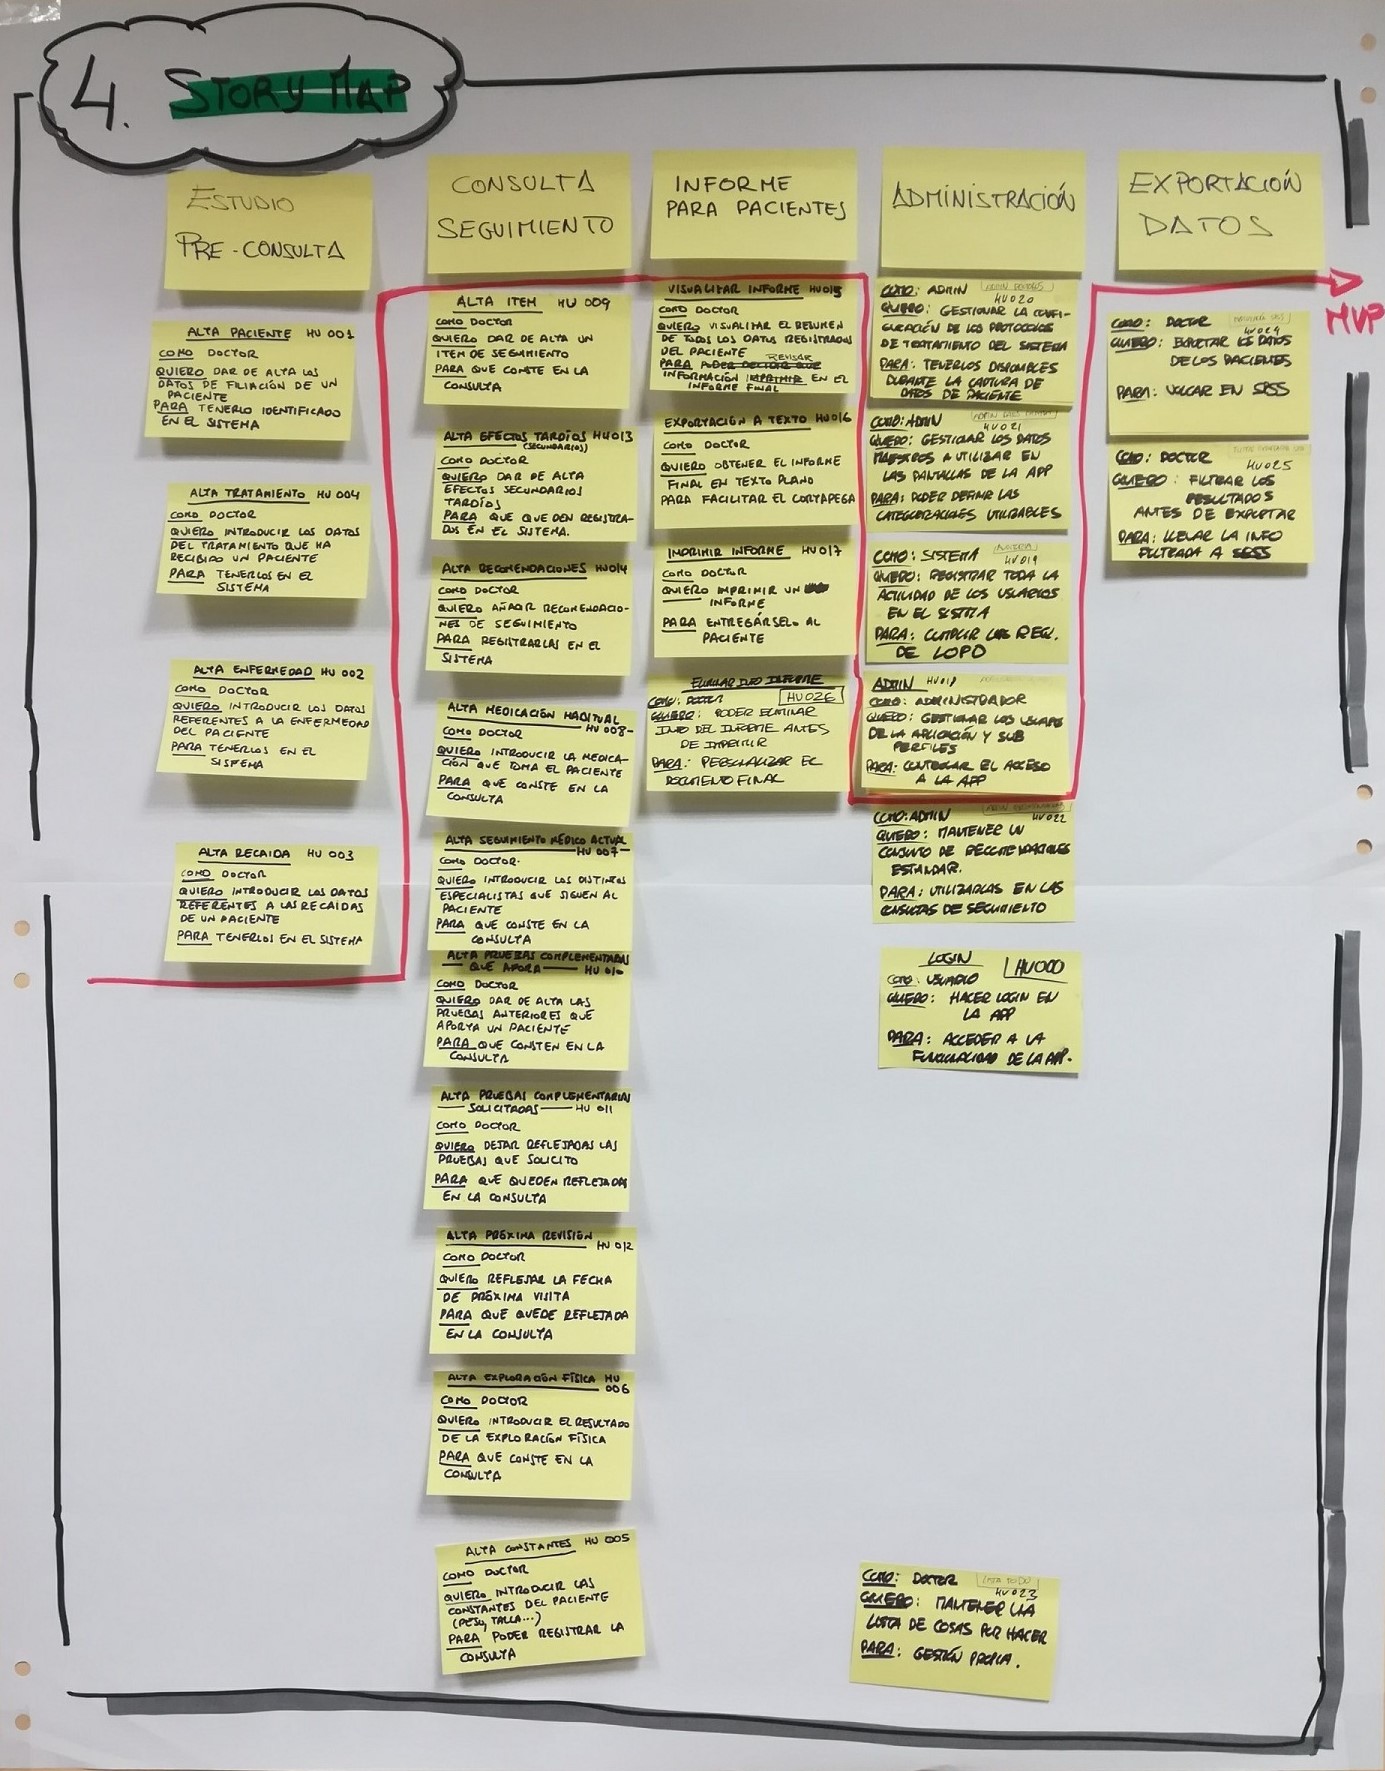 4. STORY MAP
ESTUDIO
PRE-CONSULTA
ALTA PACIENTE HU 001
COMO DOCTOR
QUIERO DAR DE ALTA LOS
DATOS DE FILIACIÓN DE UN
PACIENTE
PARA TENERLO IDENTIFICADO
EN EL SISTEMA
ALTA TRATAMIENTO HU 004
COMO DOCTOR
QUIERO INTRODUCIR LOS DATOS
DEL TRATAMIENTO QUE HA
RECIBIDO UN PACIENTE
PARA TENERLOS EN EL
SISTEMA
ALTA ENFERMEDAD HU 002
COMO DOCTOR
QUIERO INTRODUCIR LOS DATOS
REFERENTES A LA ENFERMEDAD
DEL PACIENTE
PARA TENERLOS EN EL
SISTEMA
ALTA RECAIDA HU 003
COMO DOCTOR
QUIERO INTRODUCIR LOS DATOS
REFERENTES A LAS RECAIDAS
DE UN PACIENTE
PARA TENERLOS EN EL SISTEMA
CONSULTA
SEGUIMIENTO
ALTA ITEM HU 009
COMO DOCTOR
QUIERO DAR DE ALTA UN
ITEM DE SEGUIMIENTO
PARA QUE CONSTE EN LA
CONSULTA
ALTA EFECTOS TARDÍOS HU013
(SECUNDARIOS)
COMO DOCTOR
QUIERO DAR DE ALTA
EFECTOS SECUNDARIOS
TARDÍOS
PARA QUE QUEDEN REGISTRA-
DOS EN EL SISTEMA.
ALTA RECOMENDACIONES HU014
COMO DOCTOR
QUIERO AÑADIR RECOMENDACIO-
NES DE SEGUIMIENTO
PARA REGISTRARLAS EN EL
SISTEMA
ALTA MEDICACIÓN HABITUAL
HU 008-
COMO DOCTOR
QUIERO INTRODUCIR LA MEDICA-
CIÓN QUE TOMA EL PACIENTE
PARA QUE CONSTE EN LA
CONSULTA
ALTA SEGUIMIENTO MÉDICO ACTUAL
HU 007-
COMO DOCTOR.
QUIERO INTRODUCIR LOS DISTINTOS
ESPECIALISTAS QUE SIGUEN AL
PACIENTE
PARA QUE CONSTE EN LA
CONSULTA
ALTA PRUEBAS COMPLEMENTARIAS
QUE APORTA HU 010
COMO DOCTOR
QUIERO DAR DE ALTA LAS
PRUEBAS ANTERIORES QUE
APORTA UN PACIENTE
PARA QUE CONSTEN EN LA
CONSULTA
ALTA PRUEBAS COMPLEMENTARIAS
SOLICITADAS HU 011
COMO DOCTOR
QUIERO DEJAR REFLEJADAS LAS
PRUEBAS QUE SOLICITO
PARA QUE QUEDEN REFLEJADAS
EN LA CONSULTA
ALTA PRÓXIMA REVISIÓN
HU 012
COMO DOCTOR
QUIERO REFLEJAR LA FECHA
DE PRÓXIMA VISITA
PARA QUE QUEDE REFLEJADA
EN LA CONSULTA
ALTA EXPLORACIÓN FÍSICA HU
006
COMO DOCTOR
QUIERO INTRODUCIR EL RESULTADO
DE LA EXPLORACIÓN FÍSICA
PARA QUE CONSTE EN LA
CONSULTA
ALTA CONSTANTES HU 005
COMO DOCTOR
QUIERO INTRODUCIR LAS
CONSTANTES DEL PACIENTE
(PESO, TALLA...)
PARA PODER REGISTRAR LA
CONSULTA
INFORME
PARA PACIENTES
VISUALIZAR INFORME HU015
COMO DOCTOR
QUIERO VISUALIZAR EL RESUMEN
DE TODOS LOS DATOS REGISTRADOS
DEL PACIENTE
REVISAR
PARA PODER DECIDIR QUE
INFORMACIÓN IMPRIMIR EN EL
INFORME FINAL
EXPORTACIÓN A TEXTO HU016
COMO DOCTOR
QUIERO OBTENER EL INFORME
FINAL EN TEXTO PLANO
PARA FACILITAR EL CORTAPEGA
IMPRIMIR INFORME HU017
COMO DOCTOR
QUIERO IMPRIMIR UN
INFORME
PARA ENTREGÁRSELO AL
PACIENTE
ELIMINAR INFO INFORME
COMO: DOCTOR HU026
QUIERO: PODER ELIMINAR
INFO DEL INFORME ANTES
DE IMPRIMIR
PARA: PERSONALIZAR EL
DOCUMENTO FINAL
ADMINISTRACIÓN
COMO: ADMIN
HU020
QUIERO: GESTIONAR LA CONFI-
GURACIÓN DE LOS PROTOCOLOS
DE TRATAMIENTO DEL SISTEMA
PARA: TENERLOS DISPONIBLES
DURANTE LA CAPTURA DE
DATOS DE PACIENTE
COMO: ADMIN
HU021
QUIERO: GESTIONAR LOS DATOS
MAESTROS A UTILIZAR EN
LAS PANTALLAS DE LA APP
PARA: PODER DEFINIR LAS
CATEGORIZACIONES UTILIZABLES
COMO: SISTEMA
HU019
QUIERO: REGISTRAR TODA LA
ACTIVIDAD DE LOS USUARIOS
EN EL SISTEMA
PARA: CUMPLIR LOS REQ.
DE LOPD
ADMIN HU018
COMO: ADMINISTRADOR
QUIERO: GESTIONAR LOS USUARIOS
DE LA APLICACIÓN Y SUS
PERFILES
PARA: CONTROLAR EL ACCESO
A LA APP
COMO: ADMIN
HU022
QUIERO: MANTENER UN
CONJUNTO DE RECOMENDACIONES
ESTANDAR.
PARA: UTILIZARLAS EN LAS
CONSULTAS DE SEGUIMIENTO
LOGIN HU000
COMO: USUARIO
QUIERO: HACER LOGIN EN
LA APP
PARA: ACCEDER A LA
FUNCIONALIDAD DE LA APP.
COMO: DOCTOR LISTA TODO
HU023
QUIERO: MANTENER UNA
LISTA DE COSAS POR HACER
PARA: GESTIÓN PROPIA.
EXPORTACIÓN
DATOS
MVP
COMO: DOCTOR
HU024
QUIERO: EXPORTAR LOS DATOS
DE LOS PACIENTES
PARA: VOLCAR EN SPSS
COMO: DOCTOR
HU025
QUIERO: FILTRAR LOS
RESULTADOS
ANTES DE EXPORTAR
PARA: LLEVAR LA INFO
FILTRADA A SPSS